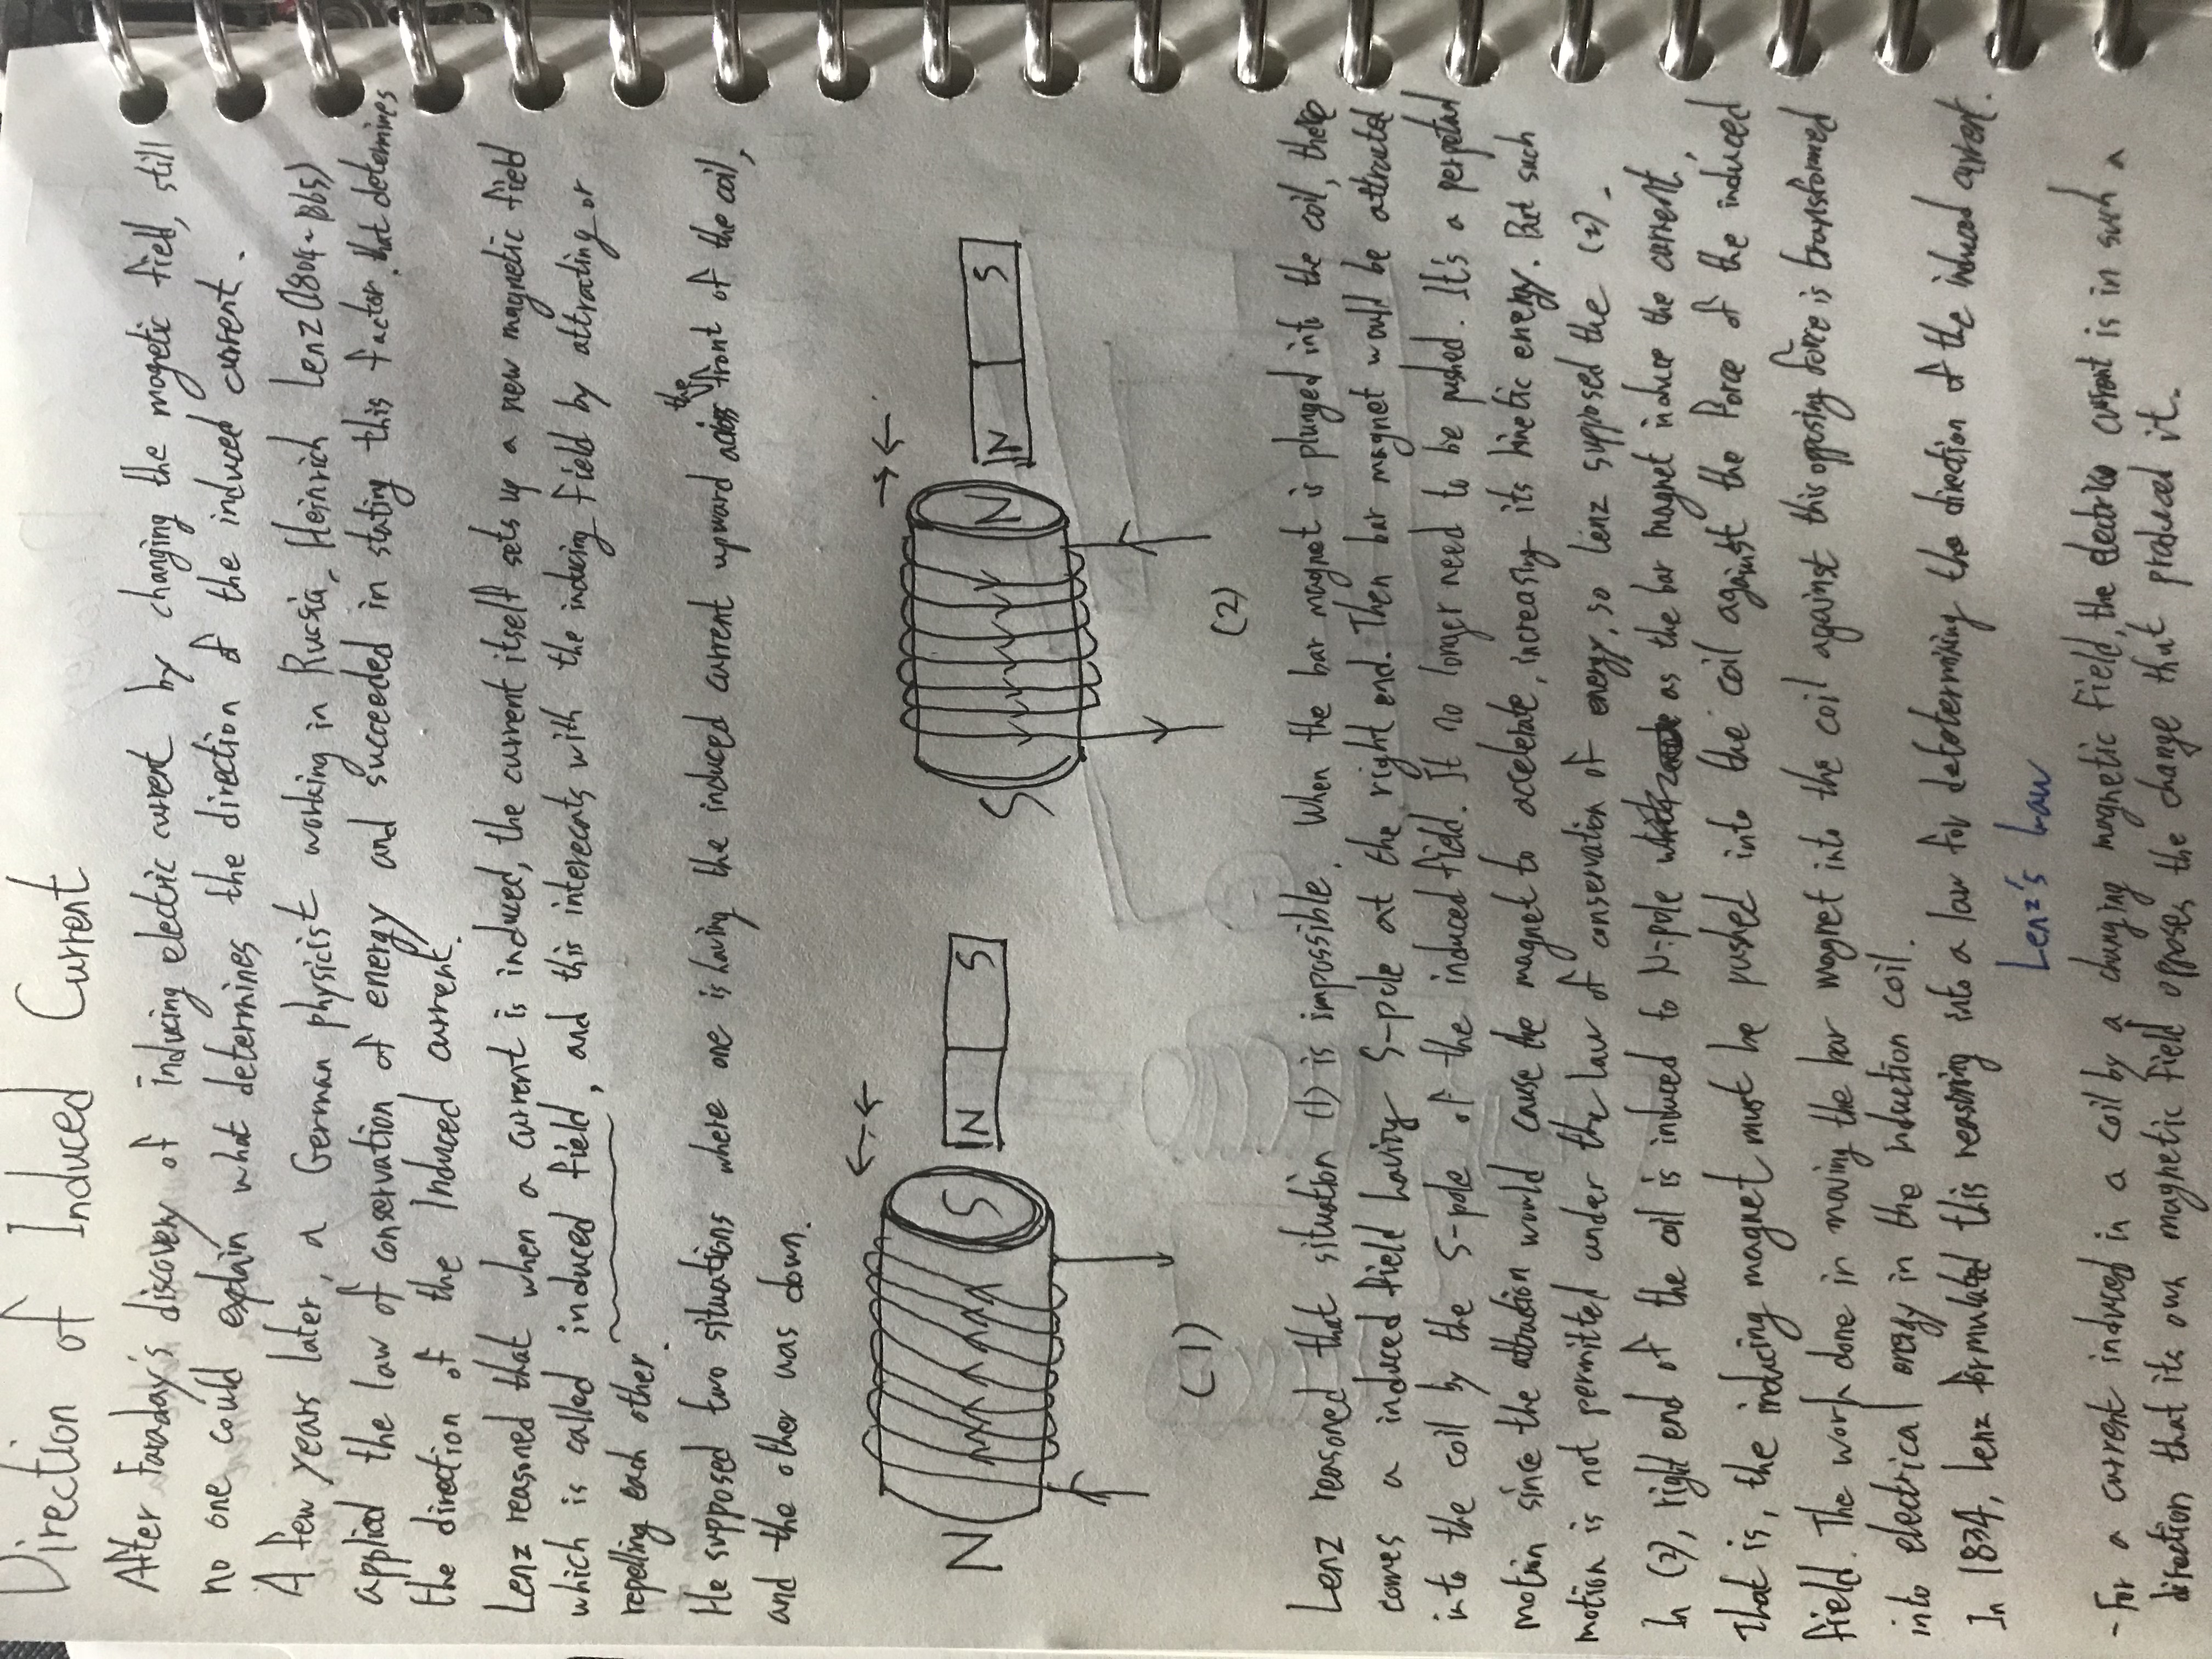 Direction of Induced Current
After Faraday's discovery of inducing electric current by changing the magnetic field, still
no one could explain what determines the direction of the induced current.
A few years later, a German physicist working in Russia, Heinrich Lenz (1804~1865)
applied the law of conservation of energy and succeeded in stating this factor that determines
the direction of the Induced current.
Lenz reasoned that when a current is induced, the current itself sets up a new magnetic field
which is called induced field, and this interacts with the inducing field by attrating or
repelling each other.
He supposed two situations where one is having the induced current upward across the front of the coil,
and the other was down.
N S N S
(1)
S N N S
(2)
Lenz reasoned that situation (1) is impossible. When the bar magnet is plunged into the coil, there
comes a induced field having S-pole at the right end. Then bar magnet would be attracted
into the coil by the S-pole of the induced field. It no longer need to be pushed. It's a perpetual
motion since the attraction would cause the magnet to accelerate, increasing its kinetic energy. But such
motion is not permitted under the law of conservation of energy, so Lenz supposed the (2).
In (2), right end of the coil is induced to N-pole as the bar magnet induce the current.
That is, the inducing magnet must be pushed into the coil against the Force of the induced
field. The work done in moving the bar magnet into the coil against this opposing force is transformed
into electrical energy in the induction coil.
In 1834, Lenz formulated this reasoning into a law for determining the direction of the induced current.
Lenz's Law
- For a current induced in a coil by a changing magnetic field, the electric current is in such a
direction that its own magnetic field opposes the change that produced it.